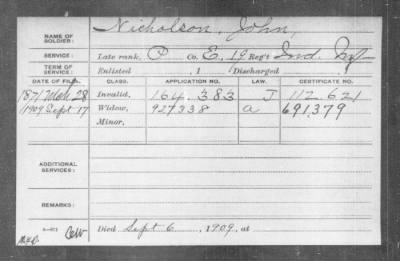 NAME OF SOLDIER: Nicholson, John,
SERVICE: Late rank, P Co. E, 19 Reg't Ind. Inf
TERM OF SERVICE: Enlisted , 1 Discharged , 1
DATE OF FILING. CLASS. APPLICATION NO. LAW. CERTIFICATE NO.
1871 Mch 28 Invalid, 164.383 J 112.621
1909 Sept 17 Widow, 927338 a 691,379
Minor,
ADDITIONAL SERVICES:
REMARKS:
Died Sept 6, 1909, at